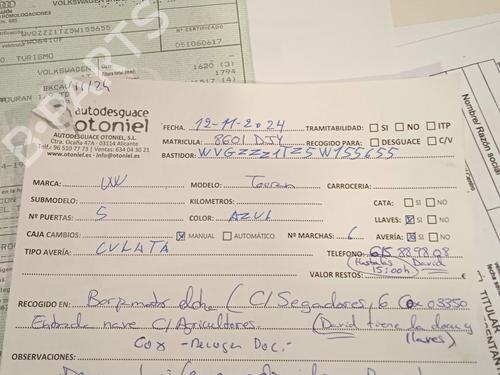 VOLKSWAGEN
OMOLOGACIONES
WVGZZZ1TZ5W155655
Nº CERTIFICADO
051060617
TURISMO
VOLKSWAGEN
1620 (3)
1794
1517 (4)
TOURAN
autodesguace
otoniel
AUTODESGUACE OTONIEL, S.L.
Ctra. Ocaña 47A - 03114 Alicante
www.otoniel.es • info@otoniel.es
FECHA: 12-11-2024 TRAMITABILIDAD: SI NO ITP
MATRICULA: 8601 DJY RECOGIDO PARA: DESGUACE C/V
BASTIDOR: WVGZZZ1TZ5W155655
MARCA: VW MODELO: Touran CARROCERIA:
SUBMODELO: KILOMETROS: CATA: SI NO
Nº PUERTAS: 5 COLOR: AZUL LLAVES: X SI NO
CAJA CAMBIOS: X MANUAL AUTOMÁTICO Nº MARCHAS: 6 AVERÍA: X SI NO
TIPO AVERÍA: CULATA TELEFONO: 615 88.98.08
(Hasta las David
15:00h.)
VALOR RESTOS:
RECOGIDO EN: (C/Segadores, 6 Cox 03350
Entrada nave C/Agricultores. (David tiene la docu y
llaves)
Cox - Recoger Doc.-
OBSERVACIONES:
Nombre/ Razón social
B-PARTS